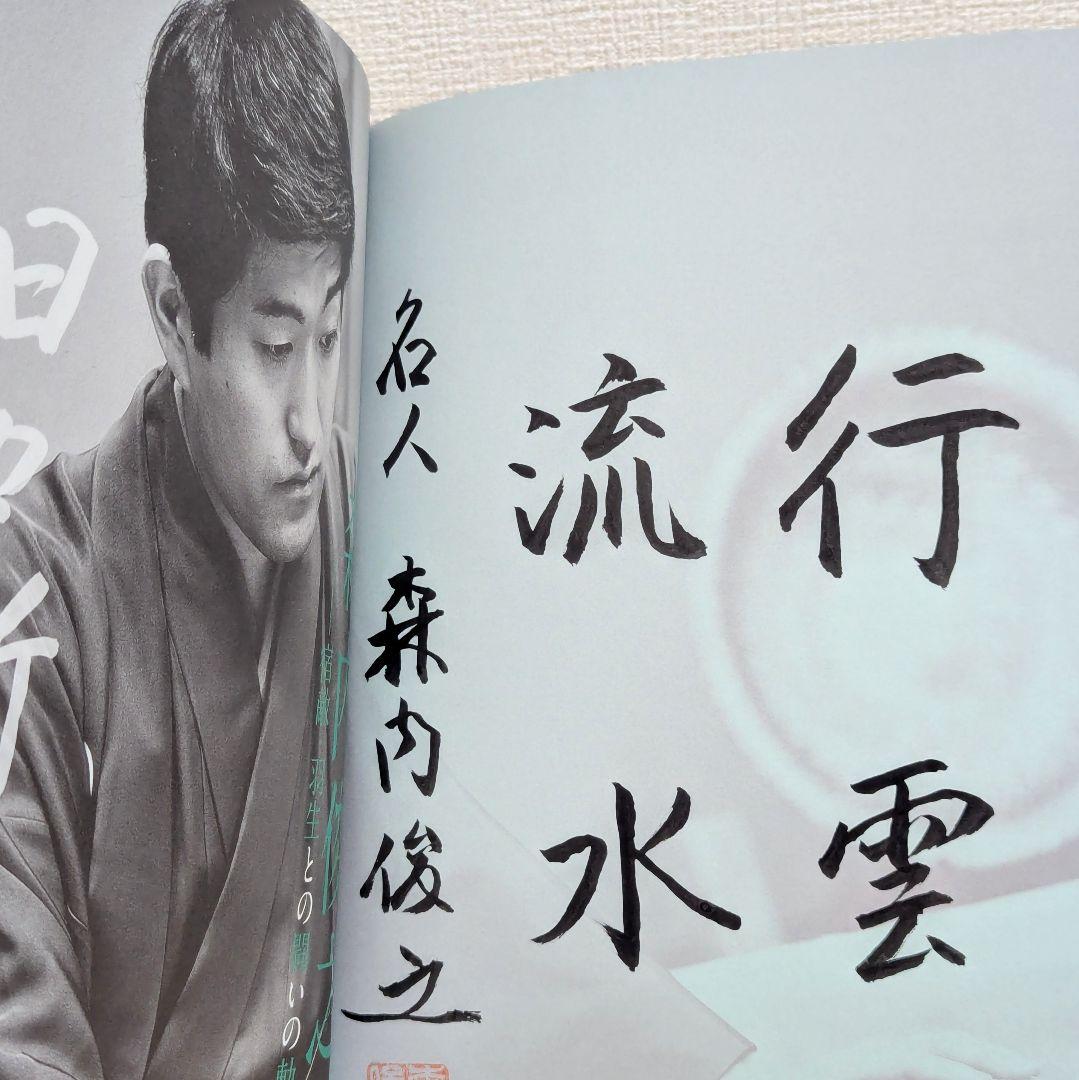 行雲
流水
名人 森内俊之
宿敵 羽生との闘いの軌